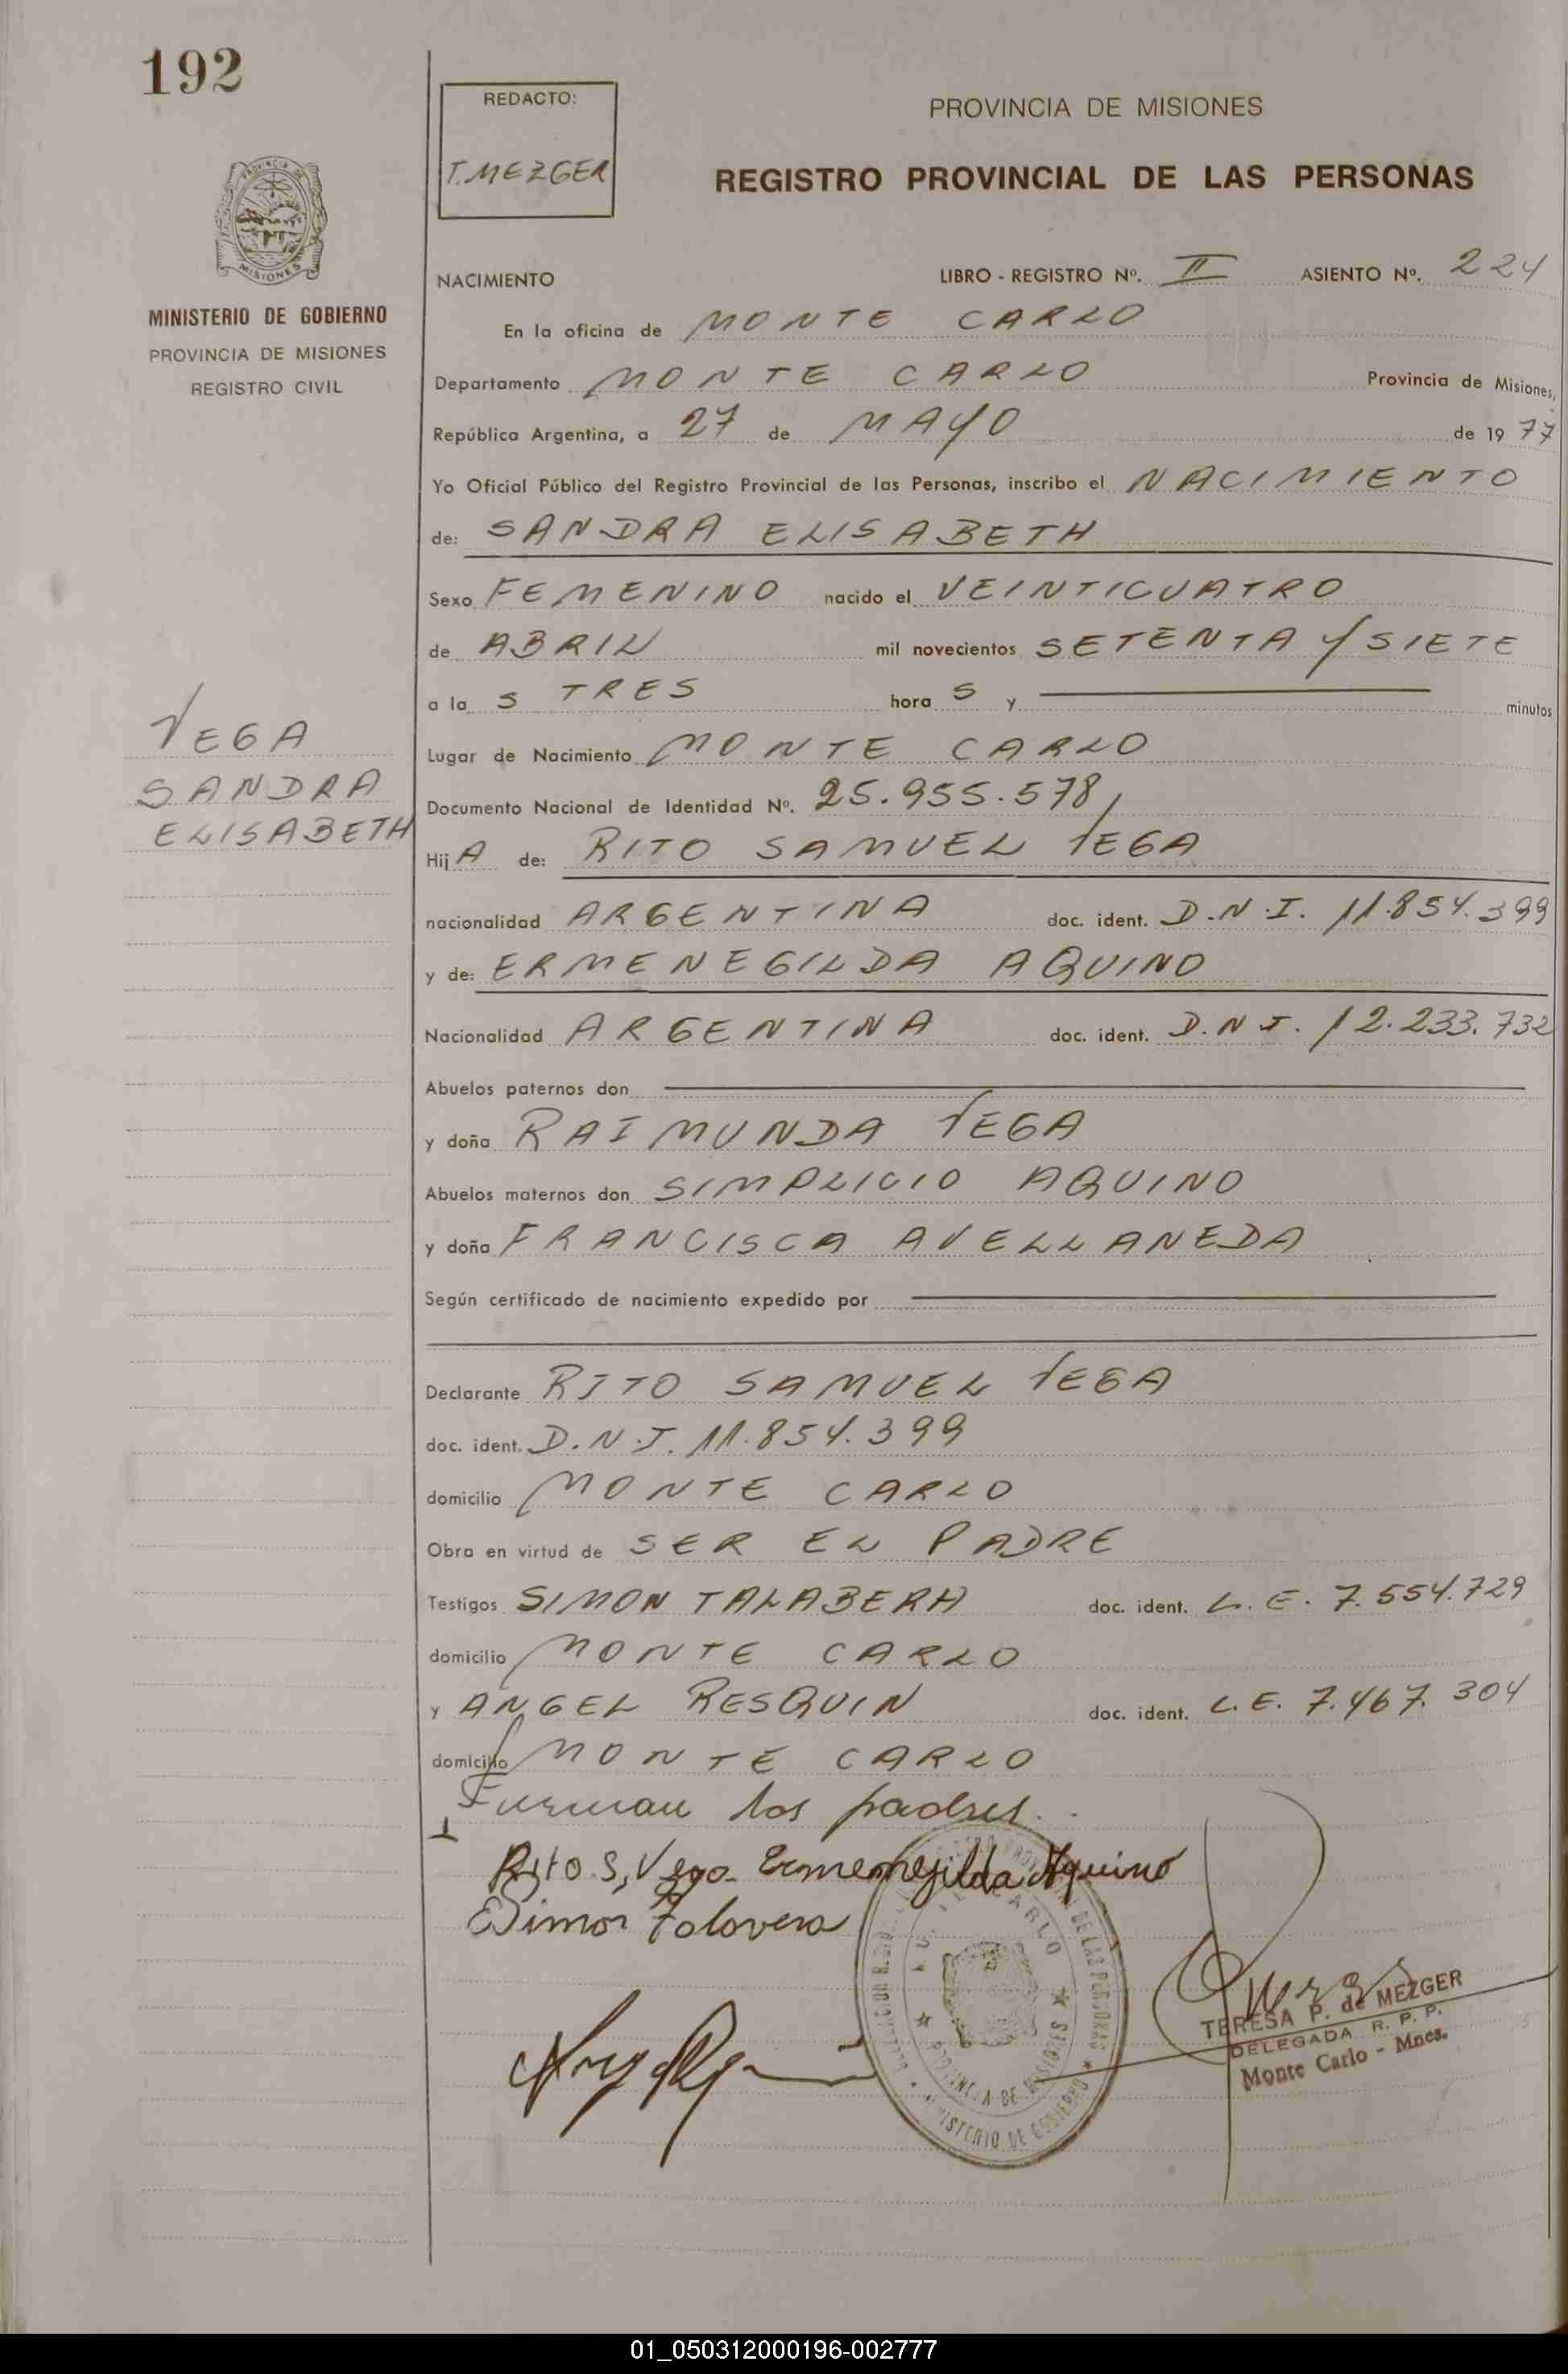 192
REDACTO:
T. MEZGER
PROVINCIA DE MISIONES
REGISTRO PROVINCIAL DE LAS PERSONAS
PROVINCIA DE
MISIONES
MINISTERIO DE GOBIERNO
PROVINCIA DE MISIONES
REGISTRO CIVIL
NACIMIENTO LIBRO - REGISTRO Nº. II ASIENTO Nº. 224
En la oficina de MONTE CARLO
Departamento MONTE CARLO Provincia de Misiones,
República Argentina, a 27 de MAYO de 19 77
Yo Oficial Público del Registro Provincial de las Personas, inscribo el NACIMIENTO
de: SANDRA ELISABETH
Sexo FEMENINO nacido el VEINTICUATRO
de ABRIL mil novecientos SETENTA Y SIETE
a la S TRES hora S y minutos
VEGA
SANDRA
ELISABETH
Lugar de Nacimiento MONTE CARLO
Documento Nacional de Identidad Nº. 25.955.578
Hij A de: RITO SAMUEL VEGA
nacionalidad ARGENTINA doc. ident. D.N.I. 11.854.399
y de: ERMENEGILDA AQUINO
Nacionalidad ARGENTINA doc. ident. D.N.I. 12.233.732
Abuelos paternos don
y doña RAIMUNDA VEGA
Abuelos maternos don SIMPLICIO AQUINO
y doña FRANCISCA AVELLANEDA
Según certificado de nacimiento expedido por
Declarante RITO SAMUEL VEGA
doc. ident. D.N.I. 11.854.399
domicilio MONTE CARLO
Obra en virtud de SER EL PADRE
Testigos SIMON TALABERA doc. ident. L.E. 7.554.729
domicilio MONTE CARLO
y ANGEL RESQUIN doc. ident. L.E. 7.467.304
domicilio MONTE CARLO
Firman los padres.
Rito S, Vega Ermenejilda Aquino
Simon Talovera
DE LAS PERSONAS
CARLO
PROVINCIA DE MISIONES
MINISTERIO DE GOBIERNO
TERESA P. de MEZGER
DELEGADA R. P. P.
Monte Carlo - Mnes.
01_050312000196-002777